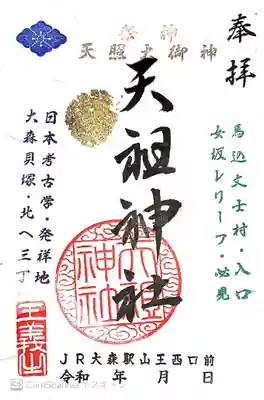 奉拝
馬込文士村・入口
女坂レリーフ・必見
祭神
天照大御神
天祖神社
天祖神社
日本考古学・発祥地
大森貝塚・北へ三丁
JR大森駅山王西口前
令和 年 月 日
CamScanner でスキャン